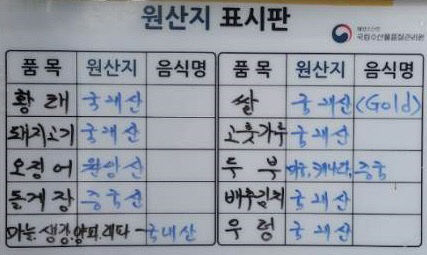 원산지 표시판
국립수산물품질관리원
품목 원산지 음식명 품목 원산지 음식명
황태 국내산 쌀 국내산 (Gold)
돼지고기 국내산 고춧가루 국내산
오징어 원양산 두부 미국, 캐나다, 중국
돌게장 중국산 배추김치 국내산
마늘, 생강, 양파, 래다 - 국내산 우렁 국내산